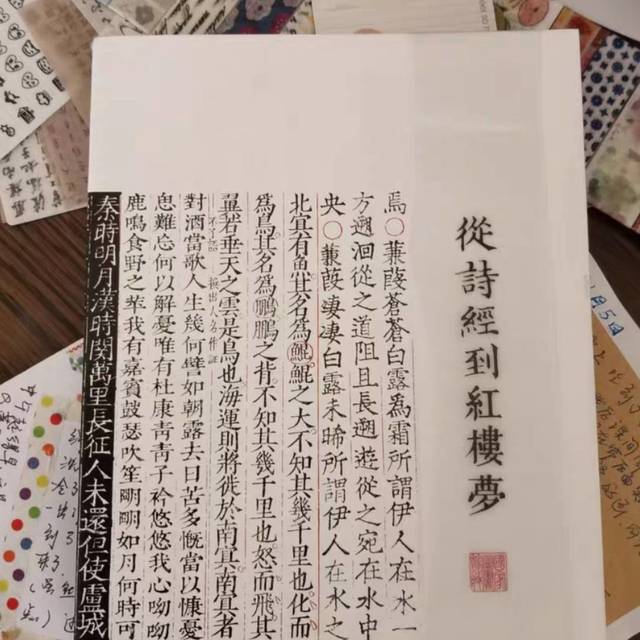 從詩經到紅樓夢
焉〇蒹葭蒼蒼白露為霜所謂伊人在水一
方遡洄從之道阻且長遡遊從之宛在水中
央〇蒹葭淒淒白露未晞所謂伊人在水之
北冥有魚其名為鯤鯤之大不知其幾千里也化而
為鳥其名為鵬鵬之背不知其幾千里也怒而飛其
翼若垂天之雲是鳥也海運則將徙於南冥南冥者
對酒當歌人生幾何譬如朝露去日苦多慨當以慷憂
思難忘何以解憂唯有杜康青青子衿悠悠我心呦呦
鹿鳴食野之苹我有嘉賓鼓瑟吹笙明明如月何時可
秦時明月漢時関萬里長征人未還但使盧城
月5日